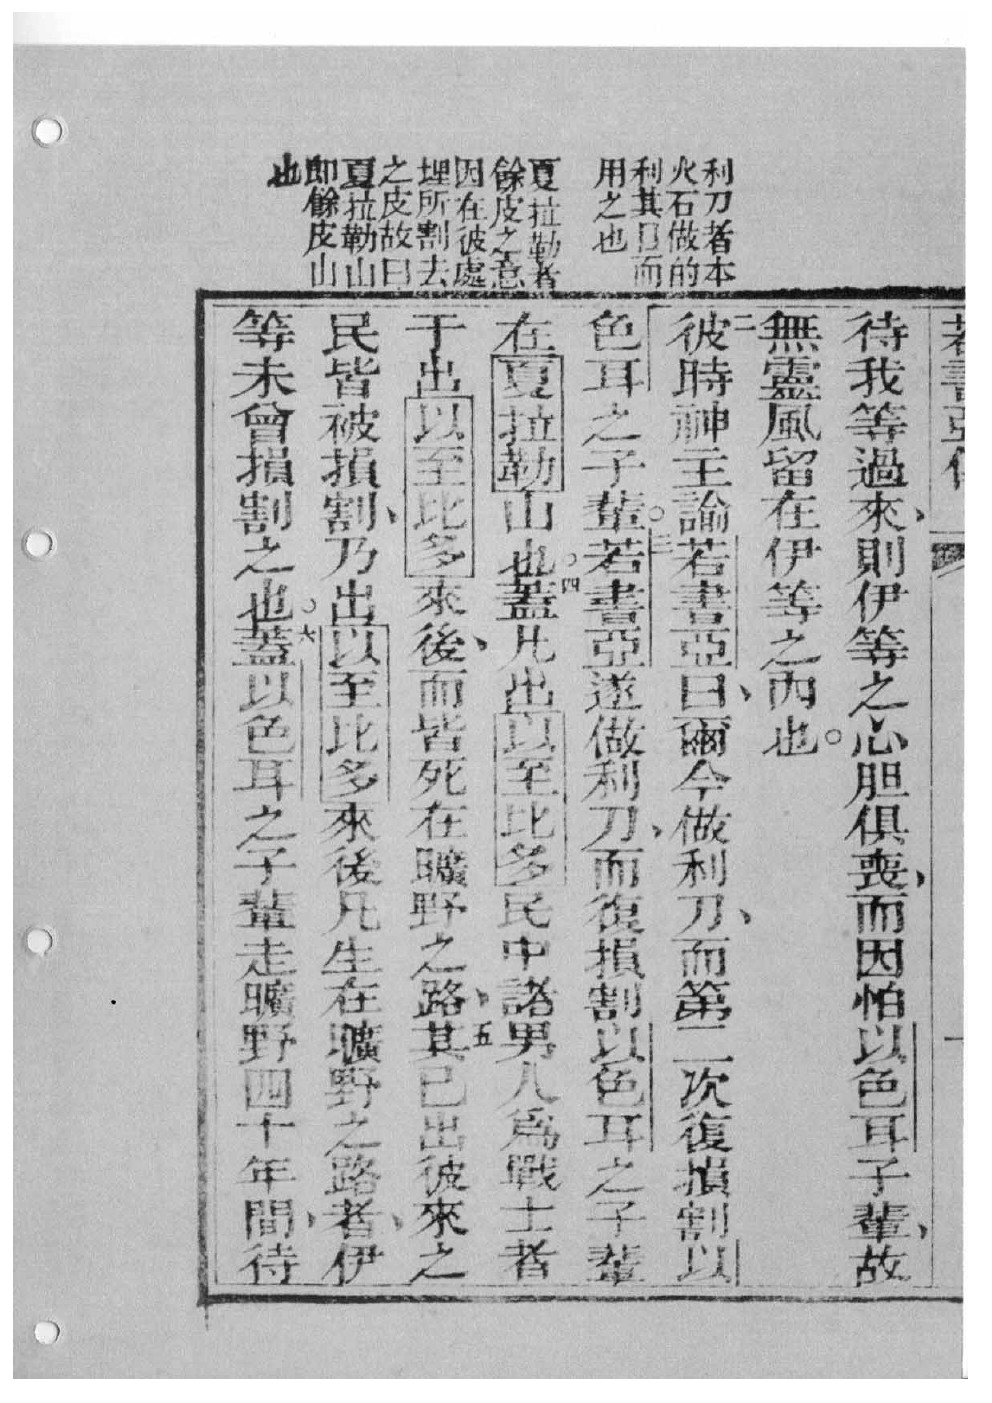 利刀者本
火石做的
利其口而
用之也
夏拉勒者
餘皮之意
因在彼處
埋所割去
之皮故曰
夏拉勒山
卽餘皮山
也
若書亞
待我等過來、則伊等之心胆俱喪、而因怕以色耳子輩、故
無靈風留在伊等之內也○
二彼時神主諭若書亞曰、爾今做利刀、而第二次復損割以
色耳之子輩○三若書亞遂做利刀、而復損割以色耳之子輩
在夏拉勒山也○四蓋凡出以至比多民中諸男人爲戰士者
于出以至比多來後、而皆死在曠野之路、五其已出彼來之
民皆被損割、乃出以至比多來後凡生在曠野之路者、伊
等未曾損割之也○六蓋以色耳之子輩走曠野四十年間、待